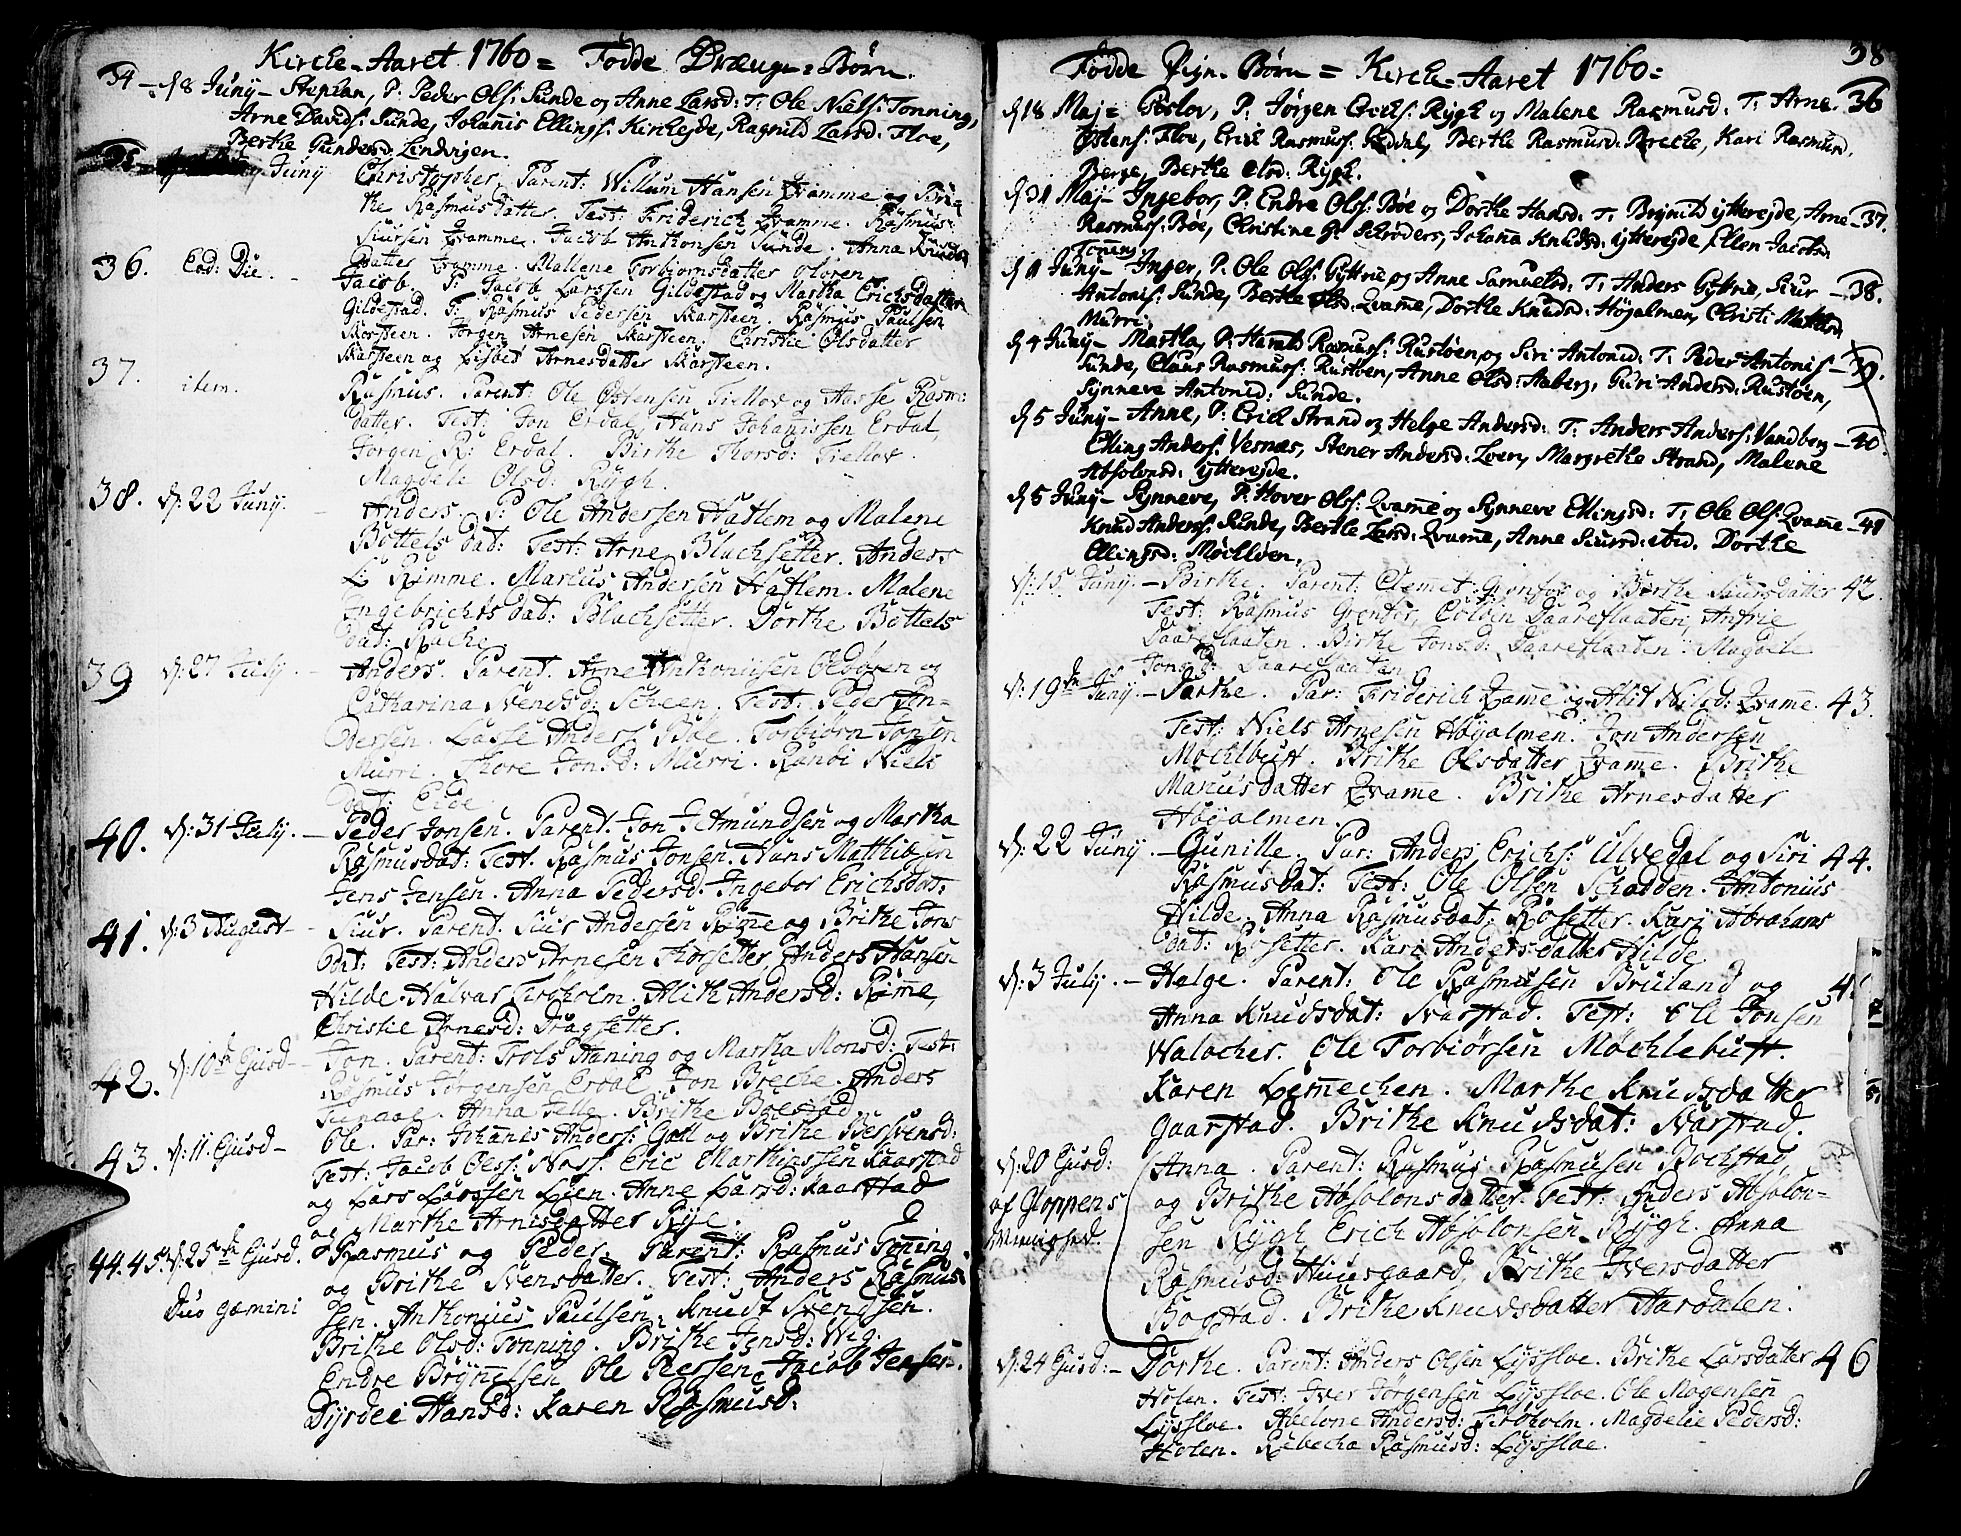 Kirche-Aaret 1760 = Fødde Drænge-Børn.
34 - d 8 Juny - Stephan, P: Peder Ols: Sunde og Anne Larsd: T: Ole Niels: Tonning,
Arne Davids: Sunde, Johannis Ellings: Kirkejde, Ragnild Larsd: Floe,
Berthe Gundersd Lindvigen.
35 Juny Christopher. Parent: Willum Hansen Qvamme og Bri=
the Rasmusdatter. Test: Friderich Qvamme. Rasmus
Siursen Qvamme. Jacob Anthonsen Sunde. Anna Knuds
datter Qvamme. Mallene Torbiornsdatter
36. Eod: Die. - Jacob. P: Jacob Larssen Gildestad og Martha Erichsdatter
Gildestad. T: Rasmus Pedersen Skarsteen. Rasmus Paulsen
Skarsteen. Jørgen Arnesen Skarsteen. Christie Olsdatter
Skarsteen og Lisbet Arnesdatter Skarsteen.
37. item. Rasmus. Parent: Ole Østensen Tiellov og Aasse Rasm:
datter. Test: Jon Erdal, Hans Johanssen Erdal,
Jorgen R: Erdal. Birthe Thorsd: Tiellov.
Magdele Olsd: Rygh.
38. d: 22 Juny. - Anders. P: Ole Andersen Hatlem og Malene
Bottels dat: Test: Arne Blachsetter. Anders
L Rimme. Marcus Andersen Hatlem. Malene
Ingebrichts dat: Blachsetter. Dorthe Bottels
dat: Rache
39 d: 27 July. - Anders. Parent. Arne Anthoniisen Oldøren og
Catharina Svendsd: Scheen. Test: Peder An-
dersen. Lasse Anders: Bøe. Torbiørn Jonsen
Murri. Thore Jonsd: Murri. Randi Niels
dat: Eide
40. d: 31 July. - Peder Jonsen. Parent. Jon Jetmundsen og Martha
Rasmusdat: Test. Rasmus Jonsen. Hans Matthissen
Jens Jensen. Anna Pedersd. Ingebor Erichsdat:
41. d: 3 August - Siur. Parent. Siur Andersen Rimme og Brithe Jons
dat: Test: Anders Arnesen Thorsetter, Anders Hansen
Hilde. Halvar Firoholm. Alith Andersd: Rimme,
Christie Arnesd: Dragsetter.
42. d: 10de Ejusd - Jon. Parent: Trols Haning og Martha Monsd: Test:
Rasmus Jørgensen Erdal. Jon Breche. Anders
Anna Felle. Brithe Boestad
43. d: 11. Ejusd - Ole. Par: Johanis Anders: Gall og Brithe Berssvensd:
Test: Jacob Olss: Noss. Eric Marthinssen Kaarstad
og Lars Larssen Lien. Anne Larsd: Kaarstad
og Marthe Arnisdatter Rye.
44. 45. d: 25de Ejusd. Rasmus og Peder. Parent: Rasmus Tonning
Duo gæmini og Brithe Svensdatter. Test: Anders Rasmus
sen. Anthonius Paulsen, Knudt Svendsen.
Brithe Olsd: Tonning. Brithe Jensd: Wig.
Endre Brynnelsen Ole Peersen Jacob Jensen.
Dyrdei Hansd: Karen Rasmusd:
38
Fødde Pign-Børn = Kirche-Aaret 1760 =
d 18 Maj = Goslov, P. Jørgen Erichs: Rygh og Malene Rasmusd: T: Arne 36
Østens: Floe, Erich Rasmus: Eddal, Berthe Rasmusd: Breche, Kari Rasmusd.
Berge, Berthe Olsd: Rygh.
d 31 Maj - Ingebor, P. Endre Ols: Bøe og Dorthe Hansd: T: Brynild ytterejde, Arne - 37.
Rasmus: Bøe, Christine Schrøders, Johanna Knudsd: ytterejde Ellen Jacobsd.
Tonning
d 1 Juny - Inger, P. Ole Ols: Gyttrie og Anne Samuelsd: T: Anders Gyttrie, Siur - 38.
Antonis: Sunde, Berthe Olsd: Qvamme, Dorthe Knudsd: Høyalmen, Christi
Murri.
d 4 Juny - Martha, P: Harald Rasmus: Rustøen og Siri Antonisd: T: Peder Antonis - 39.
Sunde, Claus Rasmus: Rustøen, Anne Olsd: Aaberg, Guri Andersd: Rustøen,
Synneve Antonisd: Sunde.
d 5 Juny - Anne, P: Erich Strand og Helge Andersd: T: Anders Anders: Vandberg - 40.
Elling Anders: Vesnæs, Stener Andersd: Loen, Margrethe Strand, Malene
Absolonsd: ytterejde.
d 5 Juny - Synneve, P: Hover Ols: Qvamme og Synneve Ellingsd: T: Ole Ols: Qvamme - 41
Knud Anders: Sunde, Berthe Larsd: Qvamme, Anne Siursd: ibid. Dorthe
Ellingsd: Møchløen.
d: 15 Juny. - Birthe. Parent: Clemet og Børthe Siursdatter 42.
Test: Rasmus Daareflaaten, Anfrie
Daareflaaten. Birthe Jonsd: Daareflaaten. Magdele
Jonsd: Daareflaaten
d: 19de Juny. - Marthe. Par: Friderich Qvame og Alit Nilsd: Qvame. 43.
Test: Niels Arnesen Høyalmen. Jon Andersen
Mochlbust. Brithe Olsdatter Qvame. Brithe
Marcusdatter Qvame. Brithe Arnesdatter
Høyalmen.
d: 22 Juny. - Gunille. Par: Anders Erichs: Ulvedal og Siri 44.
Rasmusdat: Test: Ole Olsen Schadden. Antonius
Hilde. Anna Rasmusdat: Røsetter. Kari Abrahams
dat: Røsetter. Kari Andersdatter Hilde
d: 3 July. - Helge. Parent: Ole Rasmusen Bruland og 4
Anna Knudsdat: Svarstad. Test: Ole Jonsen
Walacher. Ole Torbiørsen Møchlebust.
Karen Lemechen. Marthe Knudsdatter
Gaarstad. Brithe Knudsdat: Svarstad.
d: 20 Ejusd: Anna. Parent: Rasmus Rasmusen Bochstad,
af Gloppens og Brithe Absolonsdatter. Test: Anders Absolon-
Menighed. sen Rygh. Erich Absolonsen Rygh. Anna
Rasmusd: Huusgaard, Brithe Iversdatter
Bogstad. Brithe Knudsdatter Aardalen.
d: 24 Ejusd: - Dorthe. Parent: Anders Olsen Lyssloe. Brithe Larsdatter 46
Holen. Test: Iver Jørgensen Lyssloe. Ole Mogensen
Lyssloe. Abelone Andersd: Firoholm. Magdelie Pedersd:
Holen. Rebecha Rasmusd: Lyssloe.